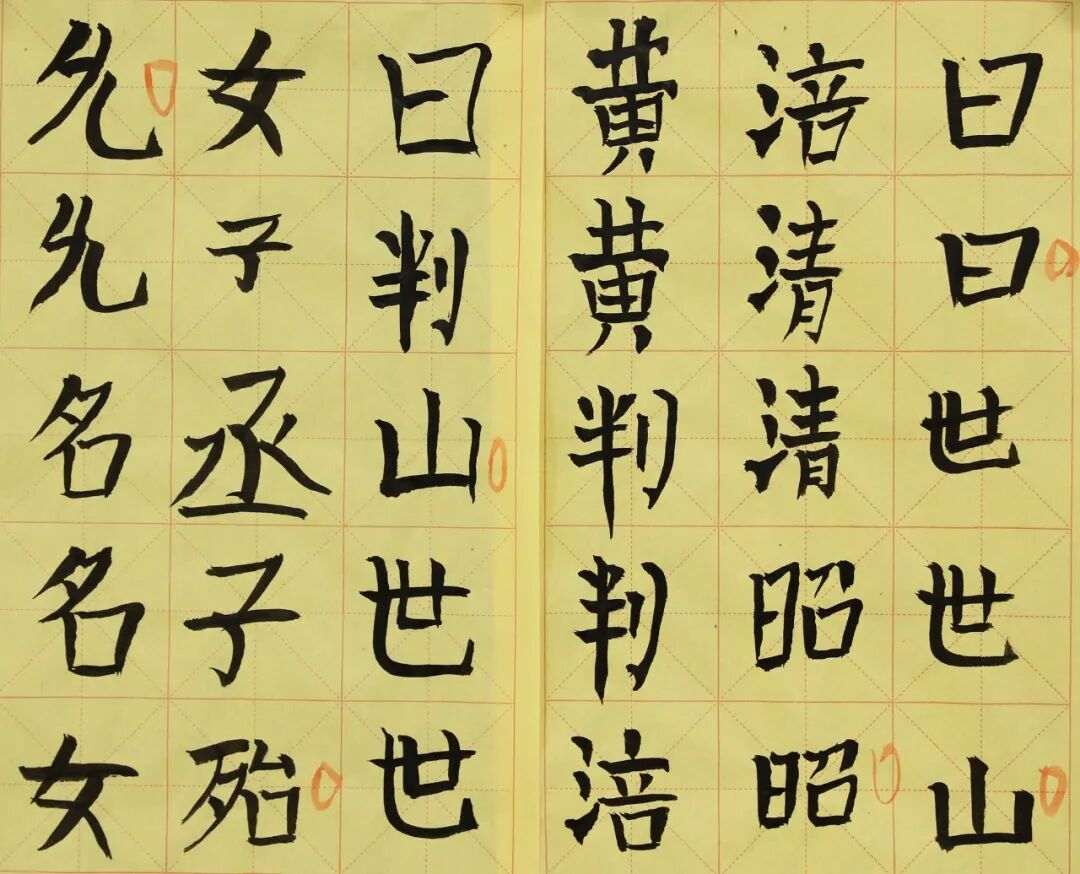 曰曰世世山
涪清清昭昭
黄黄判判涪
曰判山世世
女子丞子殆
名名女